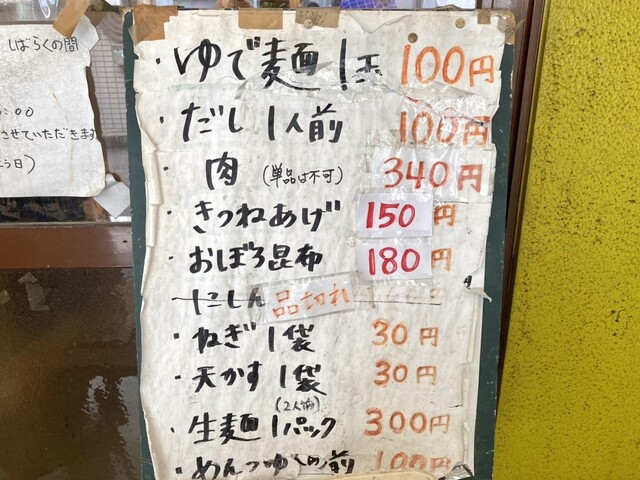 しばらくの間
:00
させていただきます
・ゆで麺 1玉 100円
・だし 1人前 100円
・肉 (単品は不可) 340円
・きつねあげ 150円
・おぼろ昆布 180円
にしん 品切れ
・ねぎ 1袋 30円
・天かす 1袋 30円
(2人前)
・生麺 1パック 300円
・めんつゆ 1人前 100円